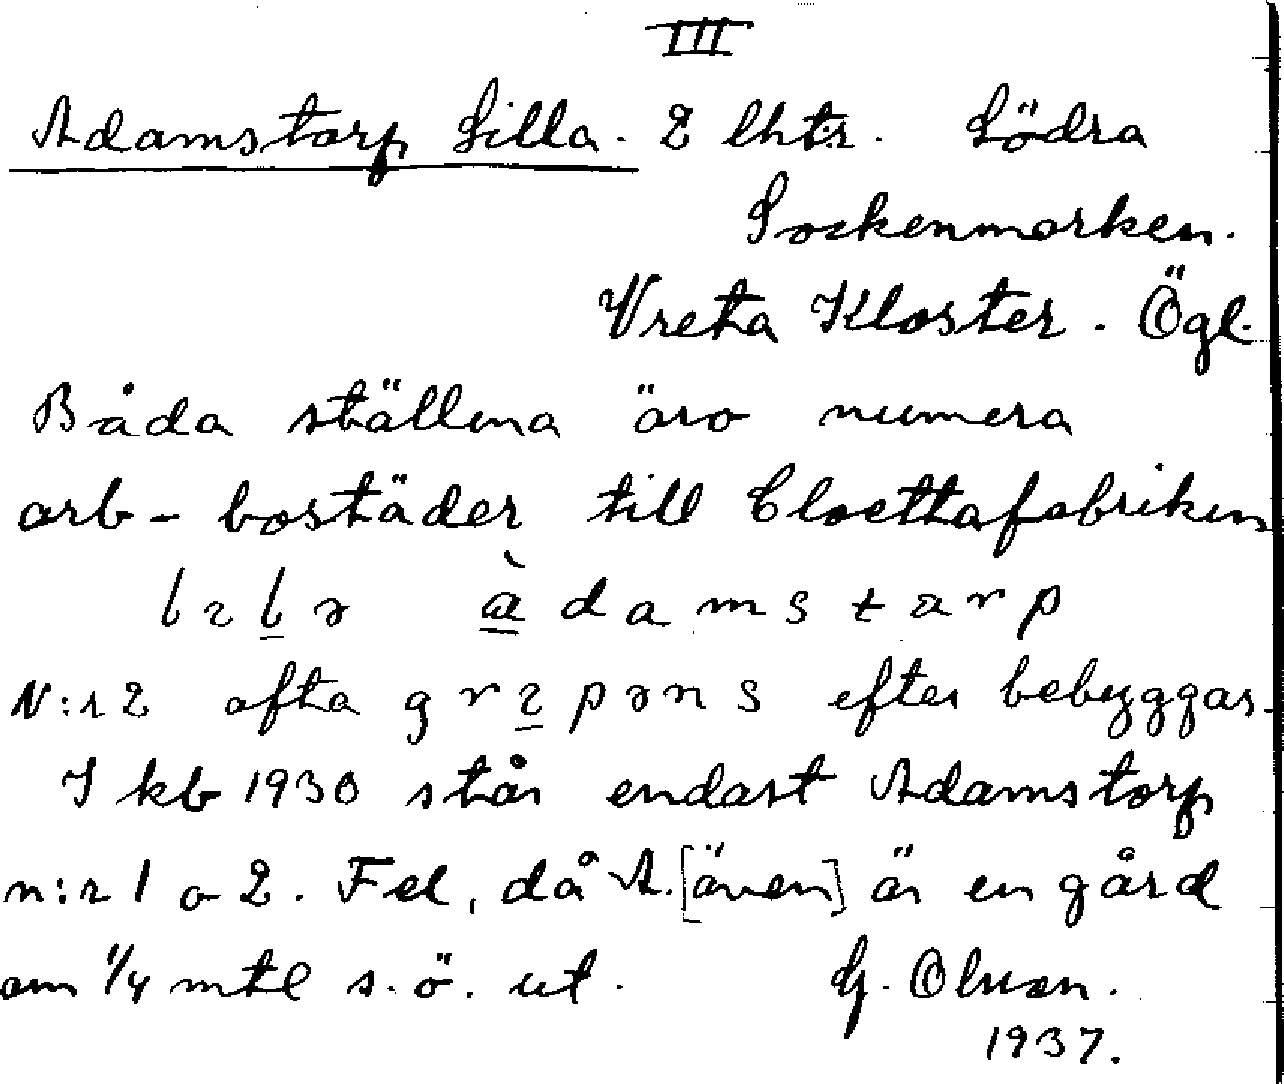 III
Adamstorp Lilla. 2 lhtr. Södra
Sockenmarken.
Vreta Kloster. Ögl.
Båda ställena äro numera
arb-bostäder till Cloettafabriken
àdamstarp
N:r 2 ofta efter bebyggas.
I kb 1930 står endast Adamstorp
n:r 1 o 2. Fel, då A. [även] är en gård
om 1/4 mtl s.ö. ut. G. Olsson.
1937.